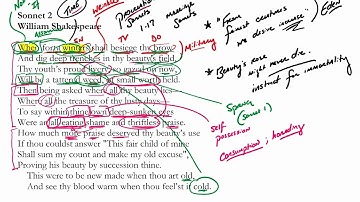 Not - If
Time
Weather
Procreation
Marriage
Sonnets
1-17
TV
DO
SN
Military
* "From fairest creatures
we desire increase" Eden
* "Beauty's rose
might never die.
instinct for immortality
Spring
(Sonnet 1)
Self
possession
Consumption, hoarding
Sonnet 2
William Shakespeare
When forty winters shall besiege thy brow,
And dig deep trenches in thy beauty's field,
Thy youth's proud livery, so gazed on now,
Will be a tattered weed, of small worth held.
Then being asked where all thy beauty lies—
Where all the treasure of thy lusty days,
To say within thine own deep-sunken eyes
Were an all-eating shame and thriftless praise.
How much more praise deserved thy beauty's use
If thou couldst answer "This fair child of mine
Shall sum my count and make my old excuse",
Proving his beauty by succession thine.
This were to be new made when thou art old,
And see thy blood warm when thou feel'st it cold.